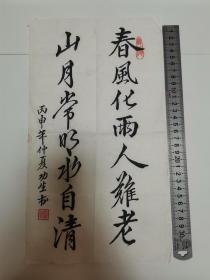 春風化雨人難老
山月常明水自清
丙申年仲夏功生书